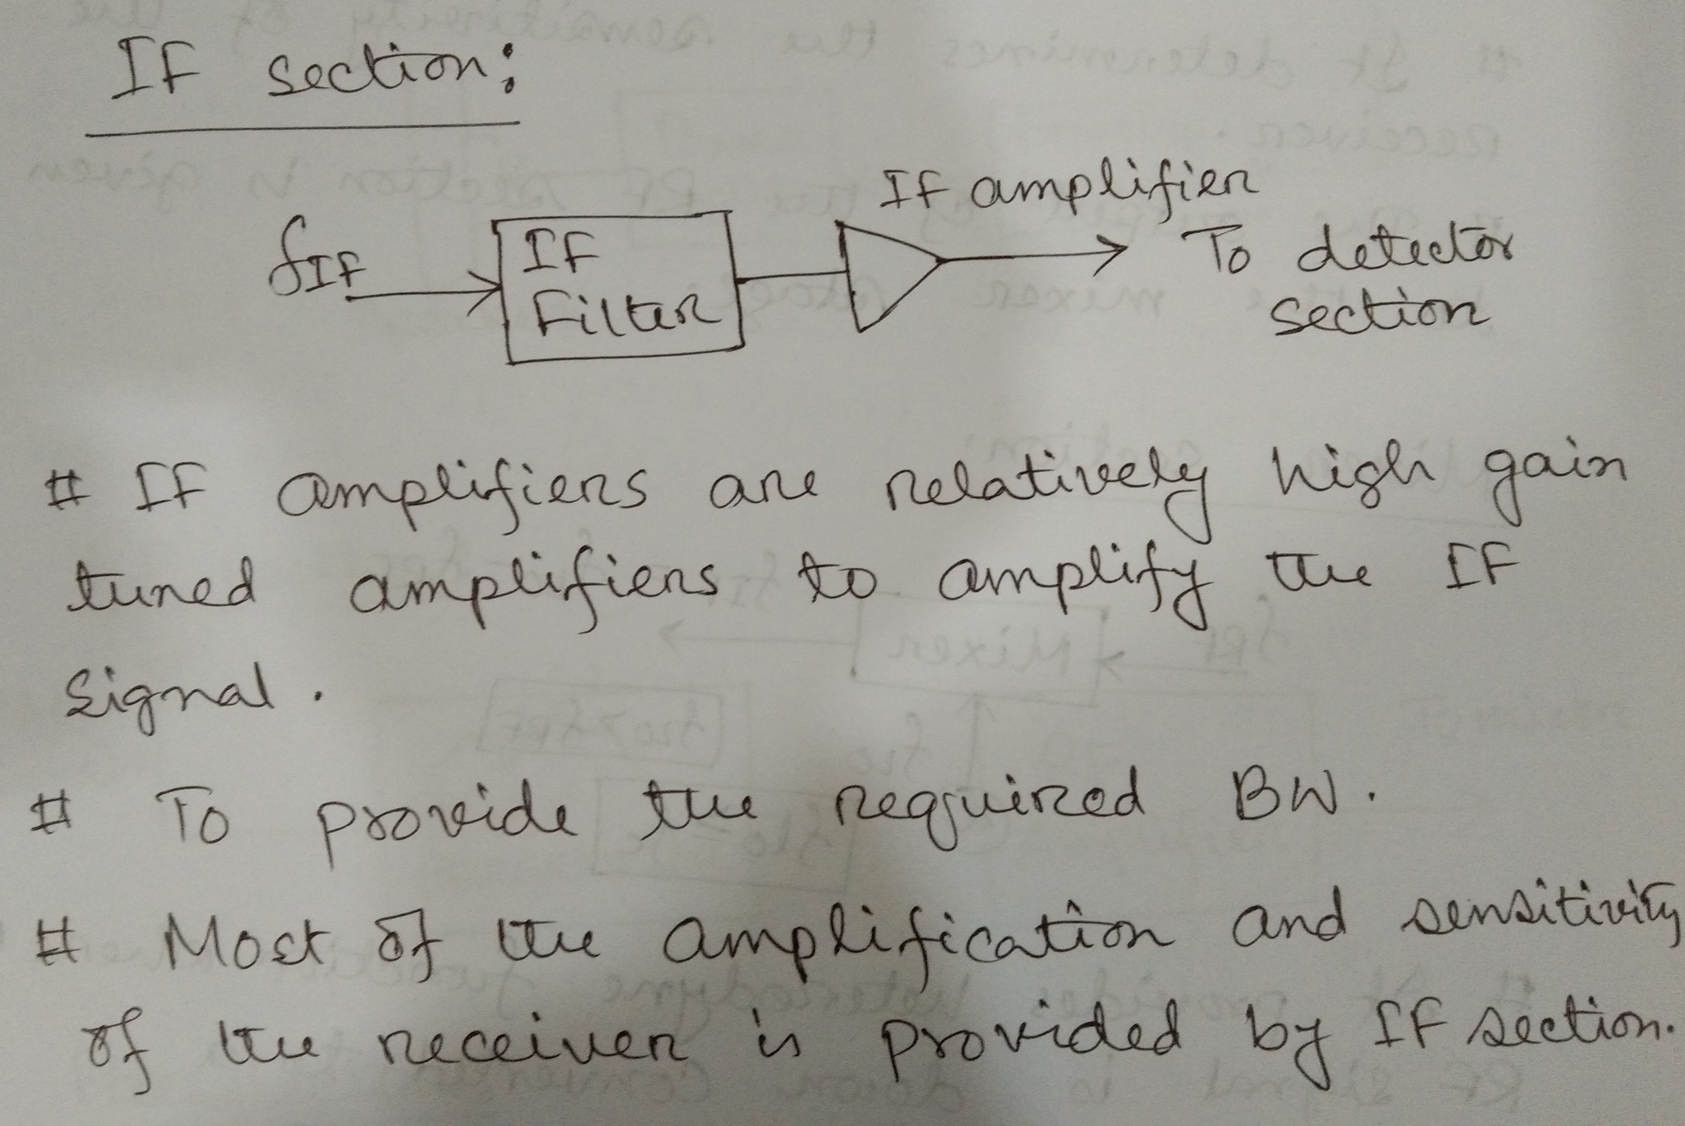 IF section:
IF amplifier
fIF
IF
Filter
To detector
section
# IF amplifiers are relatively high gain
tuned amplifiers to amplify the IF
signal.
# To provide the required BW.
# Most of the amplification and sensitivity
of the receiver is provided by IF section.